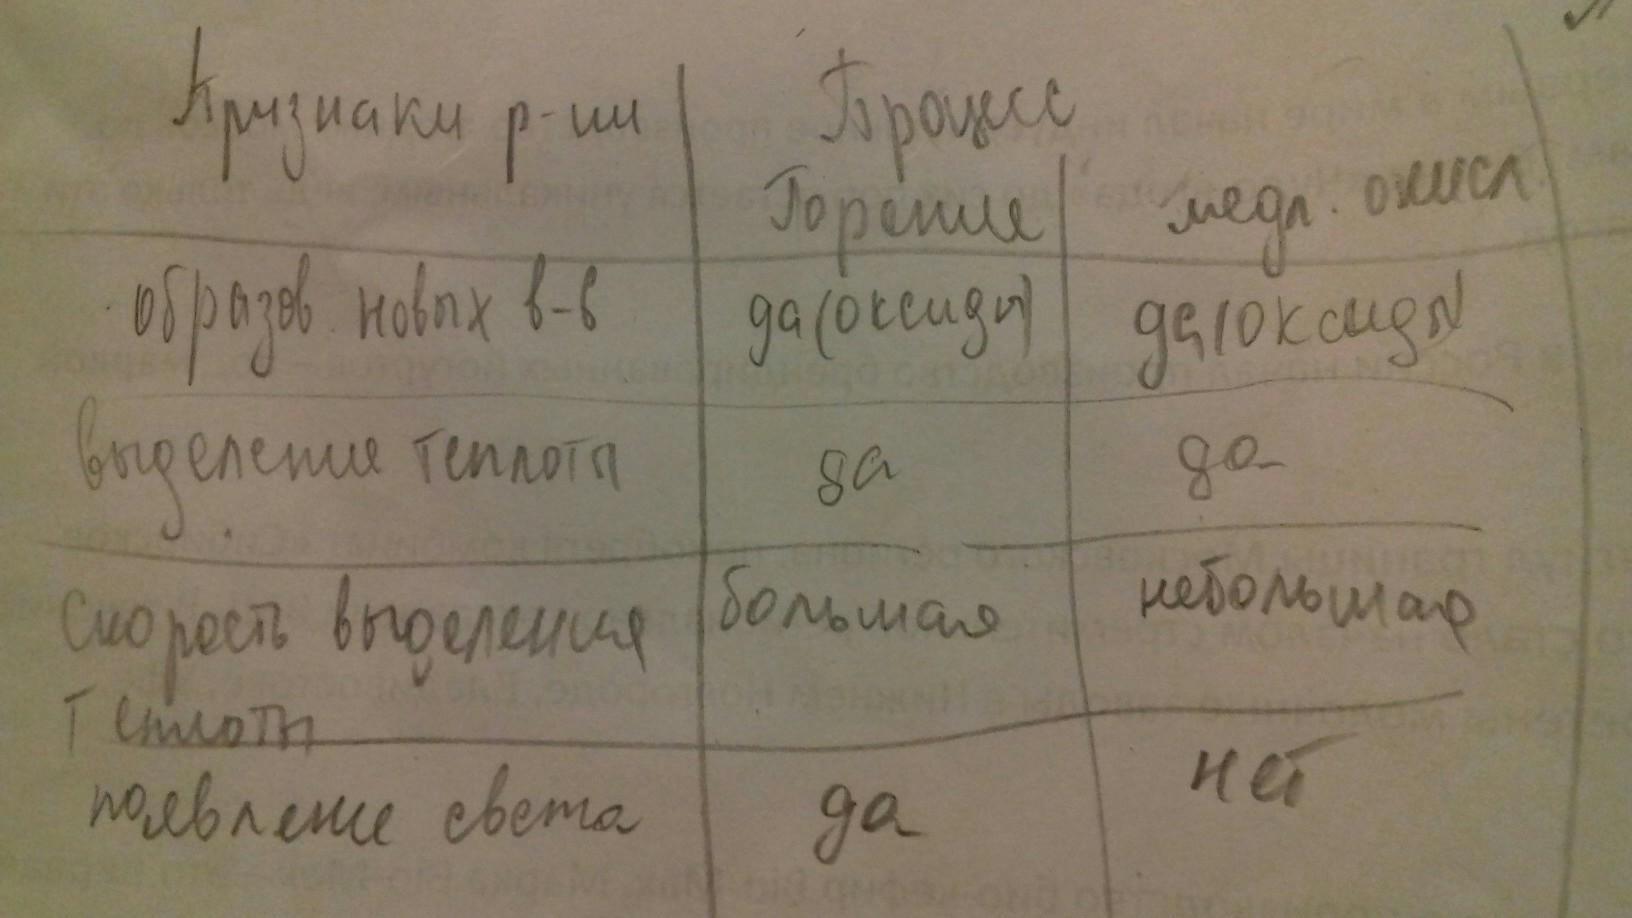 Признаки р-ии
Процесс
Горение
медл. окисл.
образов. новых в-в
да (оксиды)
да (оксиды
выделение теплоты
да
да
Скорость выделения
теплоты
большая
небольшая
появление света
да
нет